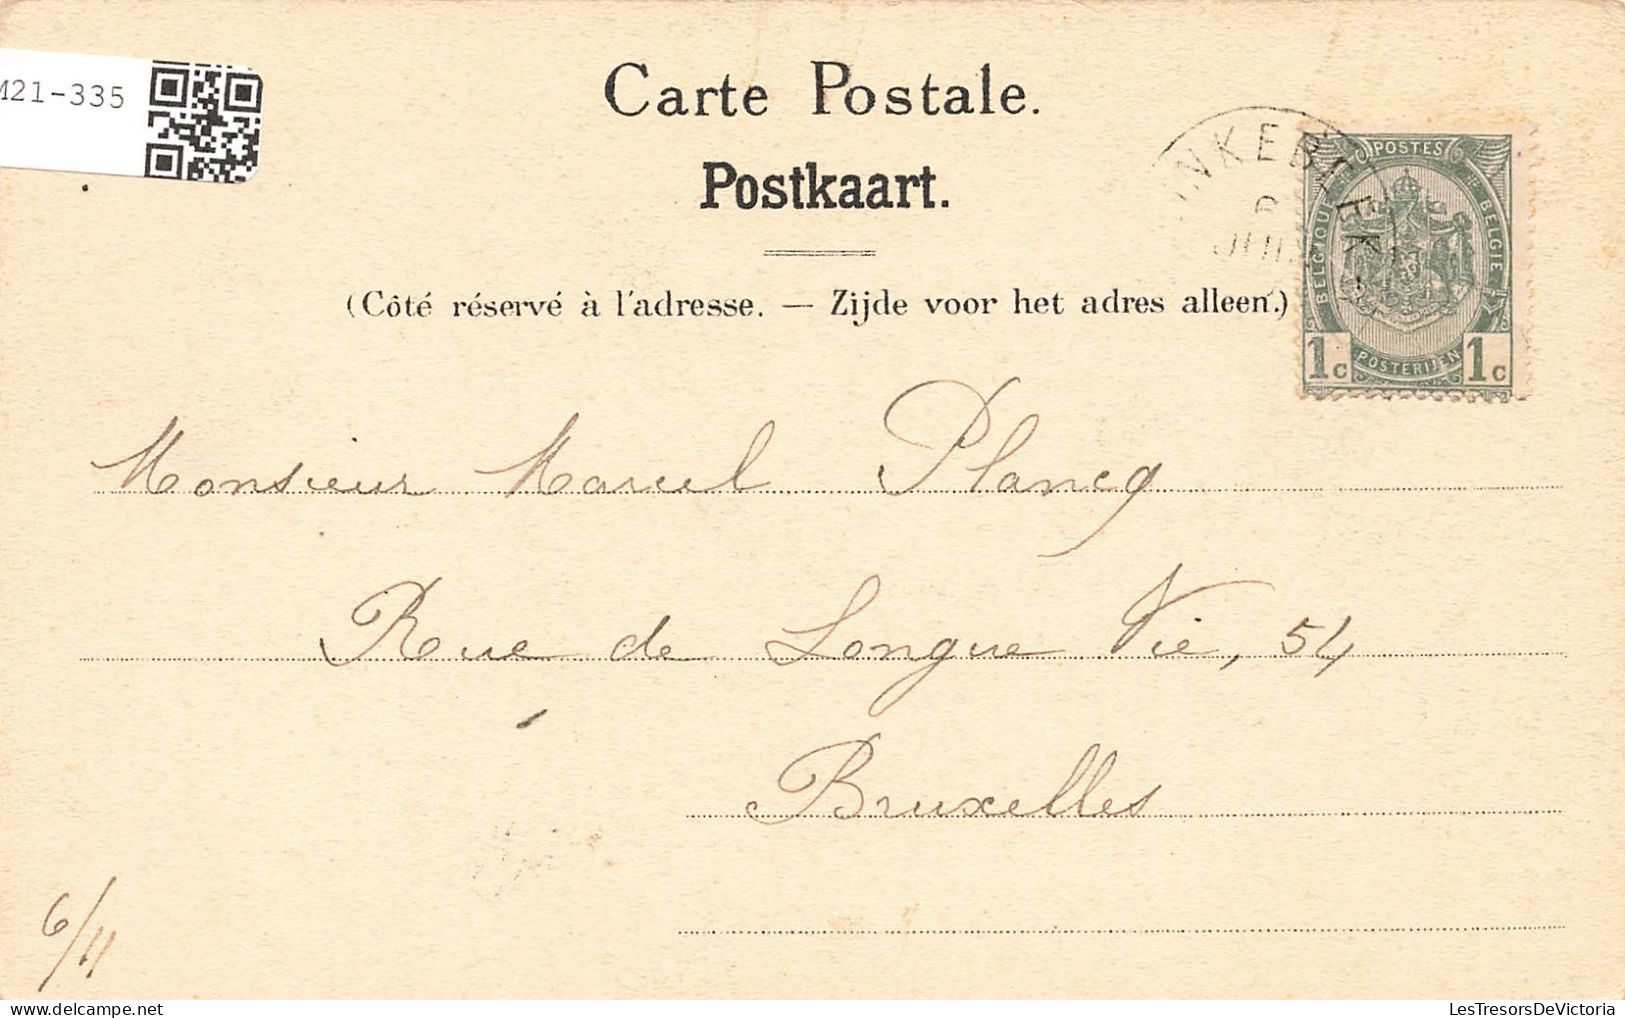 M21-335
Carte Postale.
Postkaart.
(Côté réservé à l'adresse. — Zijde voor het adres alleen.)
POSTES
BELGIQUE
BELGIE
POSTERIJEN
1c 1c
Monsieur Marcel Plancq
Rue de Longue Vie, 54
Bruxelles
6/11
LesTresorsDeVictoria